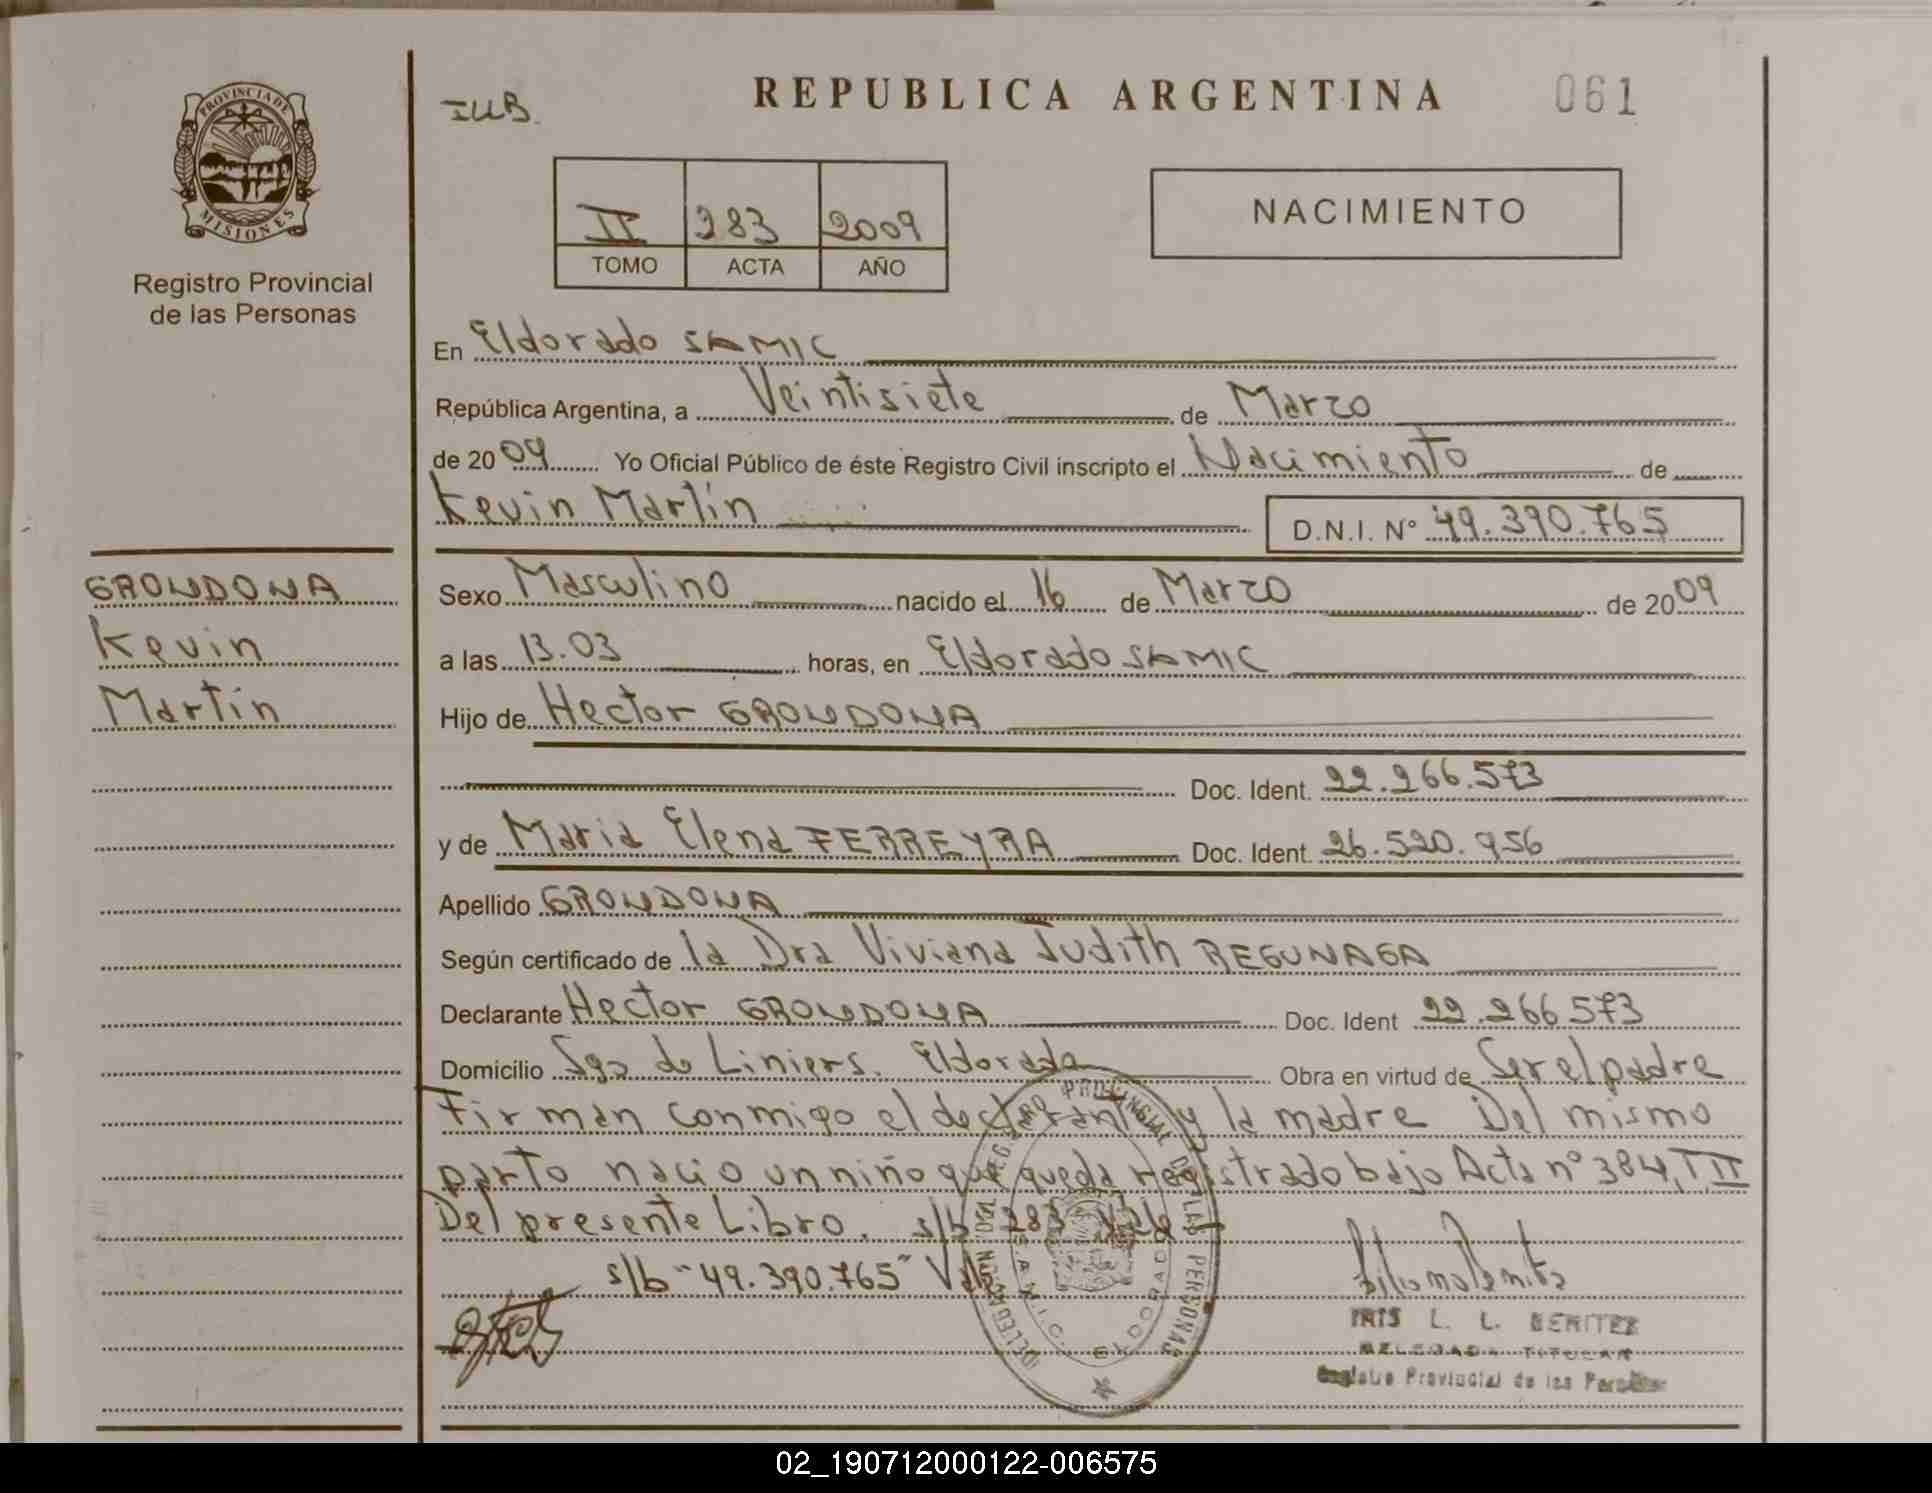 PROVINCIA DE
MISIONES
Registro Provincial
de las Personas
GRONDONA
Kevin
Martín
IUB.
REPUBLICA ARGENTINA
061
II 283 2009
TOMO ACTA AÑO
NACIMIENTO
En Eldorado SAMIC
República Argentina, a Veintisiete de Marzo
de 2009 Yo Oficial Público de éste Registro Civil inscripto el Nacimiento de
Kevin Martín D.N.I. N° 49.390.765
Sexo Masculino nacido el 16 de Marzo de 2009
a las 13.03 horas, en Eldorado SAMIC
Hijo de Hector GRONDONA
Doc. Ident. 22.266.573
y de Maria Elena FERREYRA Doc. Ident. 26.520.956
Apellido GRONDONA
Según certificado de la Dra Viviana Judith REGUNAGA
Declarante Hector GRONDONA Doc. Ident 22.266573
Domicilio Sgo de Liniers. Eldorado Obra en virtud de Ser el padre
Firman conmigo el declarante y la madre Del mismo
parto nacio un niño que queda registrado bajo Acta n° 384, T II
Del presente Libro. s/b 283 Vale
s/b "49.390.765" Vale
DELEGACION DEL REGISTRO PROVINCIAL DE LAS PERSONAS
S.A.M.I.C. ELDORADO
IRIS L. L. BENITEZ
DELEGADA TITULAR
Registro Provincial de las Personas
02_190712000122-006575